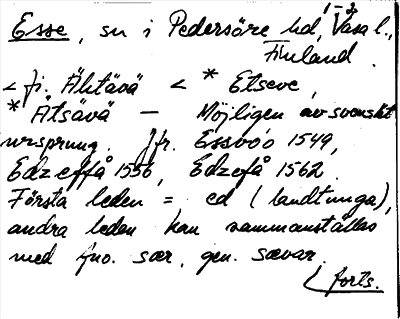 Esse, sn i Pedersöre hd, Vasa l.,
Finland.
< fi. Ähtävä < * Etseve,
* Åtsävä — Möjligen av svenskt
ursprung. Jfr. Essvoo 1549,
Edzeffå 1556, Edzefå 1562.
Första leden = ed (landtunga),
andra leden kan sammanställas
med fno. sær, gen. sævar.
forts.